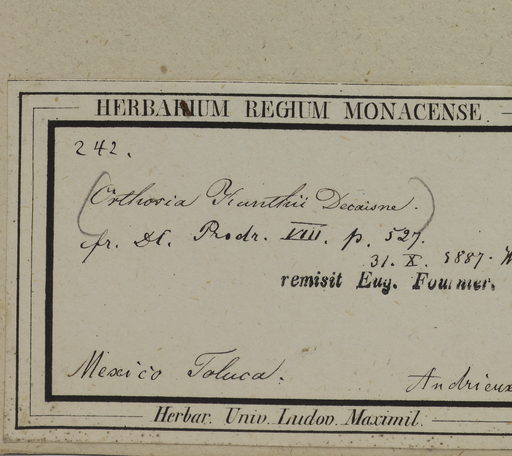 HERBARIUM REGIUM MONACENSE.
242.
(Orthosia Kunthii Decaisne.)
fr. DC. Prodr. VIII. p. 527.
31. X. 1887.
remisit Eug. Fournier.
Mexico Toluca.
Andrieux
Herbar. Univ. Ludov. Maximil.